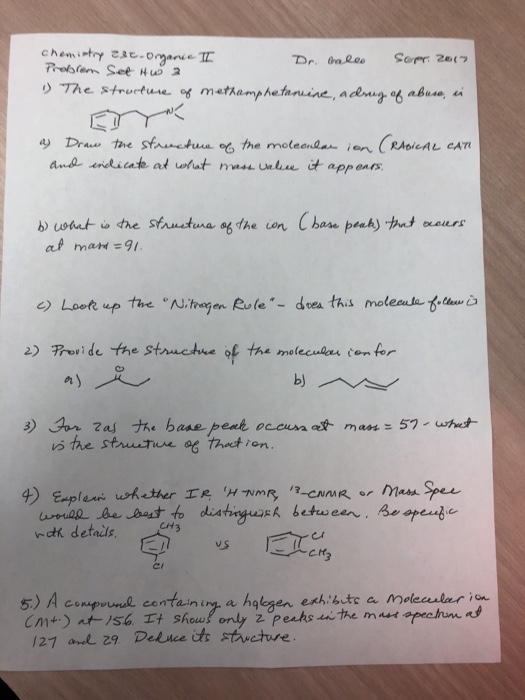 Chemistry 232-Organic II Dr. Galeo Sept. 2017
Problem Set HW 3
1) The structure of methamphetamine, a drug of abuse, is
N
a) Draw the structure of the molecular ion (RADICAL CATI
and indicate at what mass value it appears.
b) what is the structure of the ion (base peak) that occurs
at mass = 91.
c) Look up the "Nitrogen Rule" - does this molecule follow it
2) Provide the structure of the molecular ion for
a) O b)
3) For 2a) the base peak occurs at mass = 57 - what
is the structure of that ion.
4) Explain whether IR, 1H NMR, 13-CNMR or Mass Spec
would be best to distinguish between. Be specific
with details.
CH3 vs Cl
Cl CH3
5.) A compound containing a halogen exhibits a molecular ion
(M+.) at 156. It shows only 2 peaks in the mass spectrum at
127 and 29. Deduce its structure.